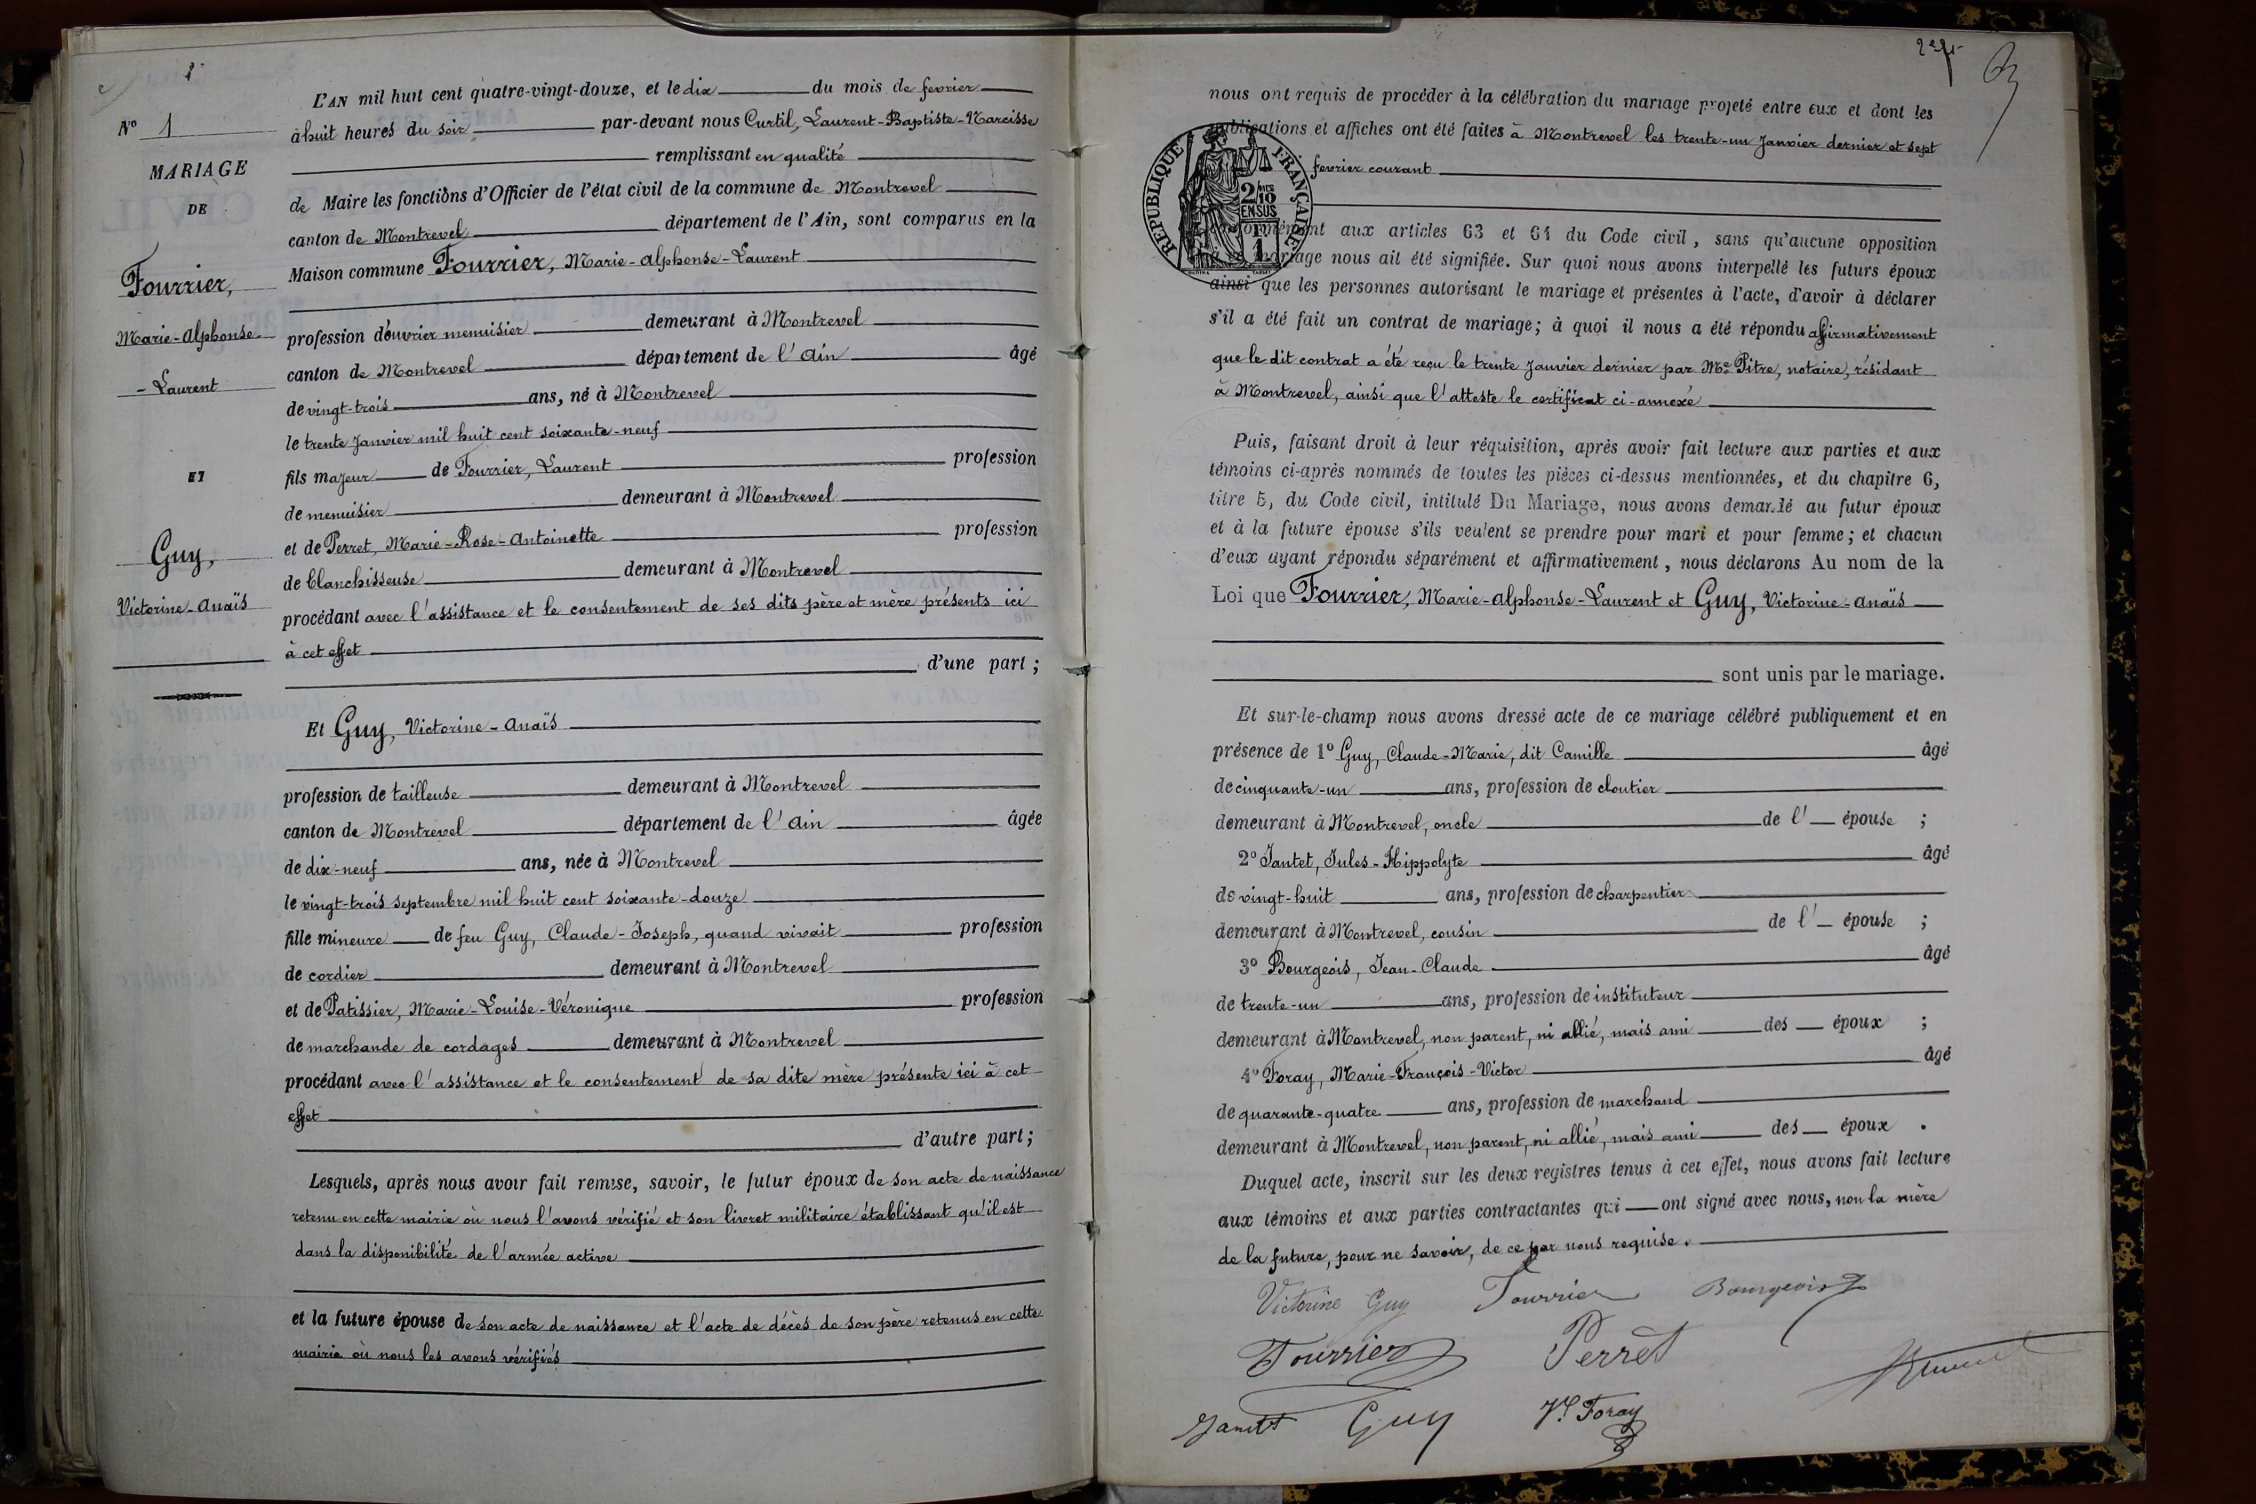 1
N° 1
MARIAGE
DE
Fourrier,
Marie-Alphonse-
-Laurent
ET
Guy,
Victorine-Anaïs
L'AN mil huit cent quatre-vingt-douze, et le dix du mois de fevrier
à huit heures du soir par-devant nous Curtil, Laurent-Baptiste-Narcisse
remplissant en qualité
de Maire les fonctions d'Officier de l'état civil de la commune de Montrevel
canton de Montrevel département de l'Ain, sont comparus en la
Maison commune Fourrier, Marie-Alphonse-Laurent
profession d'ouvrier menuisier demeurant à Montrevel
canton de Montrevel département de l'Ain âgé
de vingt-trois ans, né à Montrevel
le trente Janvier mil huit cent soixante-neuf
fils majeur de Fourrier, Laurent profession
de menuisier demeurant à Montrevel
et de Perret, Marie-Rose-Antoinette profession
de blanchisseuse demeurant à Montrevel
procédant avec l'assistance et le consentement de ses dits père et mère présents ici
à cet effet
d'une part ;
Et Guy, Victorine-Anaïs
profession de tailleuse demeurant à Montrevel
canton de Montrevel département de l'Ain âgée
de dix-neuf ans, née à Montrevel
le vingt-trois septembre mil huit cent soixante-douze
fille mineure de feu Guy, Claude-Joseph, quand vivait profession
de cordier demeurant à Montrevel
et de Patissier, Marie-Louise-Véronique profession
de marchande de cordages demeurant à Montrevel
procédant avec l'assistance et le consentement de sa dite mère présente ici à cet
effet
d'autre part ;
Lesquels, après nous avoir fait remise, savoir, le futur époux de son acte de naissance
retenu en cette mairie où nous l'avons vérifié et son livret militaire établissant qu'il est
dans la disponibilité de l'armée active
et la future épouse de son acte de naissance et l'acte de décès de son père retenus en cette
mairie où nous les avons vérifiés
nous ont requis de procéder à la célébration du mariage projeté entre eux et dont les
publications et affiches ont été faites à Montrevel les trente-un Janvier dernier et sept
fevrier courant
RÉPUBLIQUE FRANÇAISE
2/10
EN SUS
1
conformément aux articles 63 et 64 du Code civil, sans qu'aucune opposition
mariage nous ait été signifiée. Sur quoi nous avons interpellé les futurs époux
ainsi que les personnes autorisant le mariage et présentes à l'acte, d'avoir à déclarer
s'il a été fait un contrat de mariage ; à quoi il nous a été répondu affirmativement
que le dit contrat a été reçu le trente Janvier dernier par Me Pitre, notaire, résidant
à Montrevel, ainsi que l'atteste le certificat ci-annexé
Puis, faisant droit à leur réquisition, après avoir fait lecture aux parties et aux
témoins ci-après nommés de toutes les pièces ci-dessus mentionnées, et du chapitre 6,
titre 5, du Code civil, intitulé Du Mariage, nous avons demandé au futur époux
et à la future épouse s'ils veulent se prendre pour mari et pour femme ; et chacun
d'eux ayant répondu séparément et affirmativement, nous déclarons Au nom de la
Loi que Fourrier, Marie-Alphonse-Laurent et Guy, Victorine-Anaïs
sont unis par le mariage.
Et sur-le-champ nous avons dressé acte de ce mariage célébré publiquement et en
présence de 1° Guy, Claude-Marie, dit Camille âgé
de cinquante-un ans, profession de cloutier
demeurant à Montrevel, oncle de l' épouse ;
2° Jantet, Jules-Hippolyte âgé
de vingt-huit ans, profession de charpentier
demeurant à Montrevel, cousin de l' épouse ;
3° Bourgeois, Jean-Claude âgé
de trente-un ans, profession de instituteur
demeurant à Montrevel, non parent, ni allié, mais ami des époux ;
4° Foray, Marie-François-Victor âgé
de quarante-quatre ans, profession de marchand
demeurant à Montrevel, non parent, ni allié, mais ami des époux .
Duquel acte, inscrit sur les deux registres tenus à cet effet, nous avons fait lecture
aux témoins et aux parties contractantes qui ont signé avec nous, non la mère
de la future, pour ne savoir, de ce par nous requise.
Victorine Guy Fourrier Bourgeois
Fourrier Perret
Jantet Guy Vr Foray